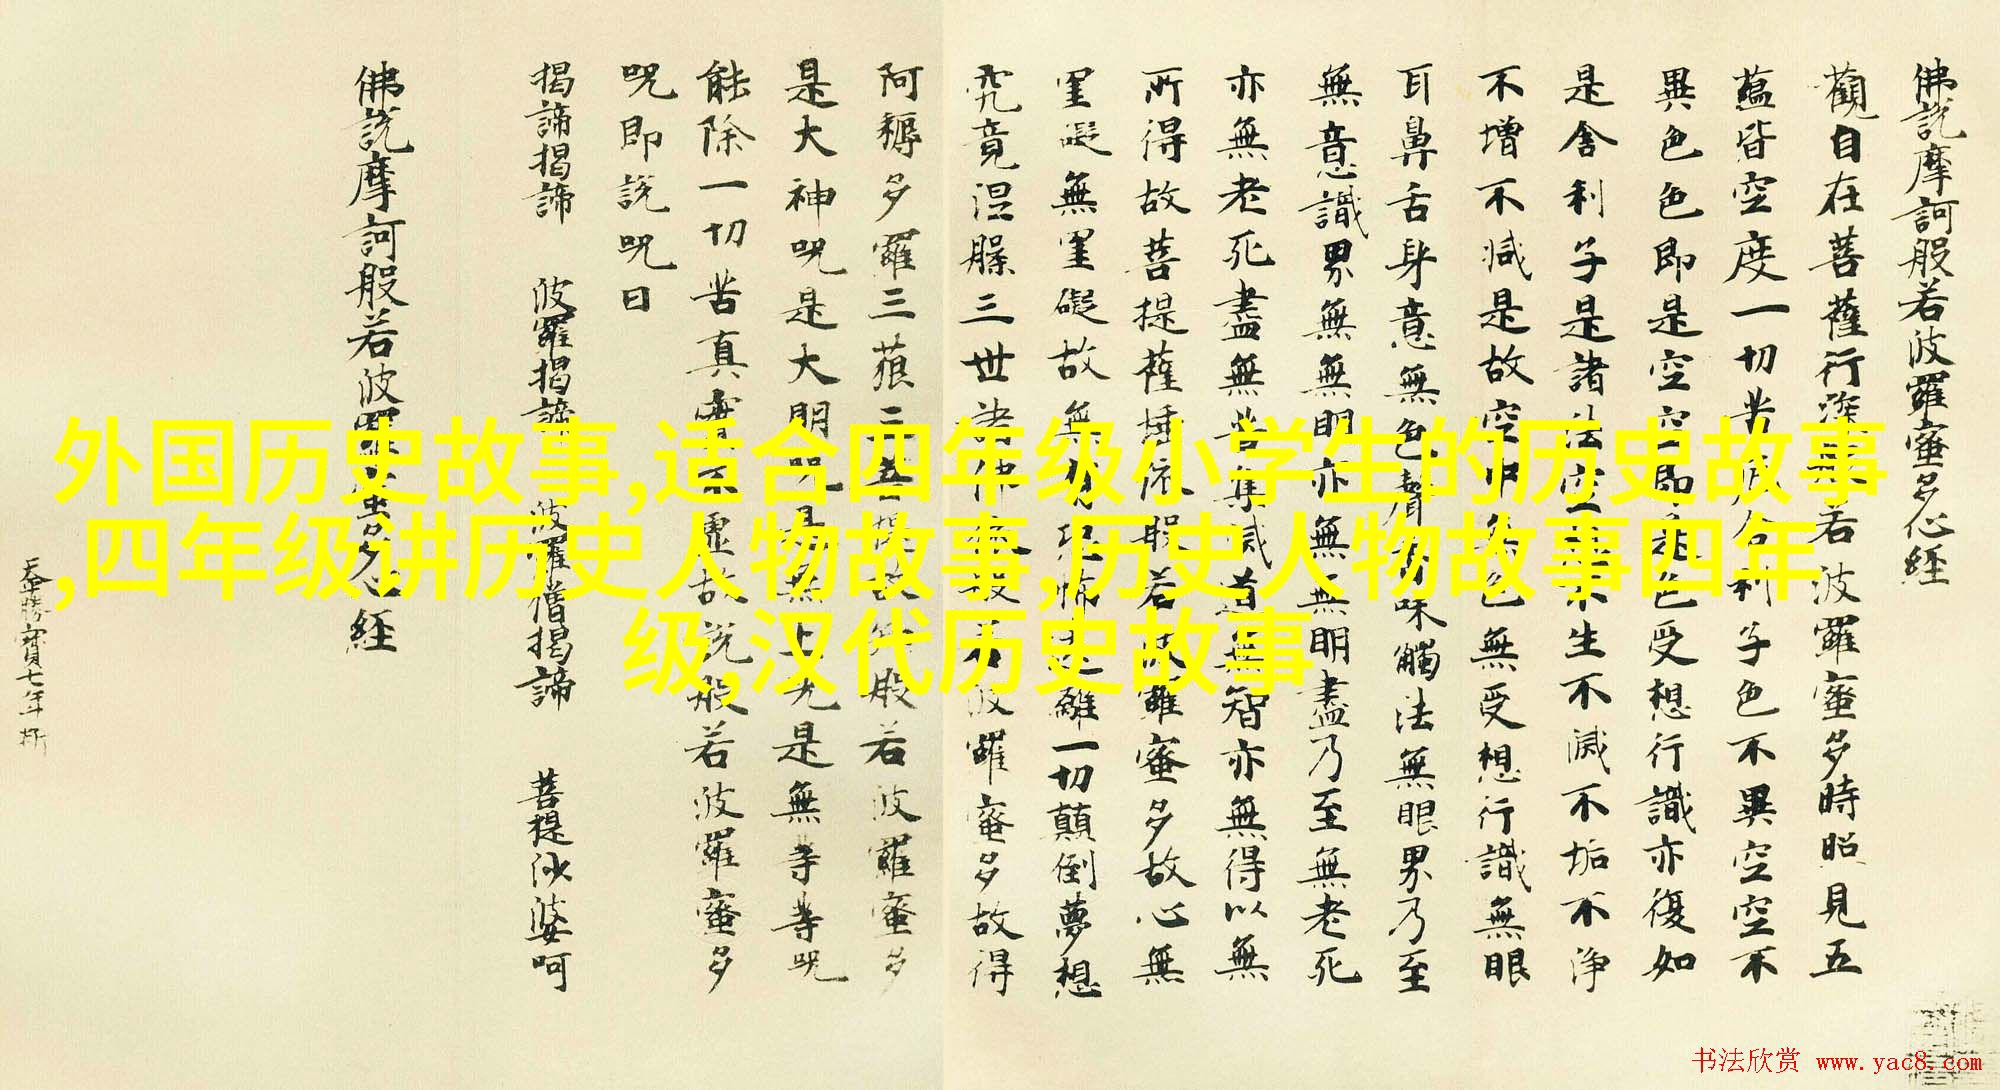 佛說摩訶般若波羅蜜多心經
觀自在菩薩行深般若波羅蜜多時照見五
蘊皆空度一切苦厄舍利子色不異空空不
異色色即是空空即是色受想行識亦復如
是舍利子是諸法空相不生不滅不垢不淨
不增不減是故空中無色無受想行識無眼
耳鼻舌身意無色聲香味觸法無眼界乃至
無意識界無無明亦無無明盡乃至無老死
亦無老死盡無苦集滅道無智亦無得以無
所得故菩提薩埵依般若波羅蜜多故心無
罣礙無罣礙故無有恐怖遠離一切顛倒夢想
究竟涅槃三世諸佛依般若波羅蜜多故得
阿耨多羅三藐三菩提故知般若波羅蜜多
是大神呪是大明呪是無上呪是無等等呪
能除一切苦真實不虛故說般若波羅蜜多
呪即說呪曰
揭諦揭諦 波羅揭諦 波羅僧揭諦 菩提娑婆呵
佛說摩訶般若波羅蜜多心經
外国历史故事,适合四年级小学生的历史故事
,四年级讲历史人物故事,历史人物故事四年
级,汉代历史故事
书法欣赏 www.yac8.com